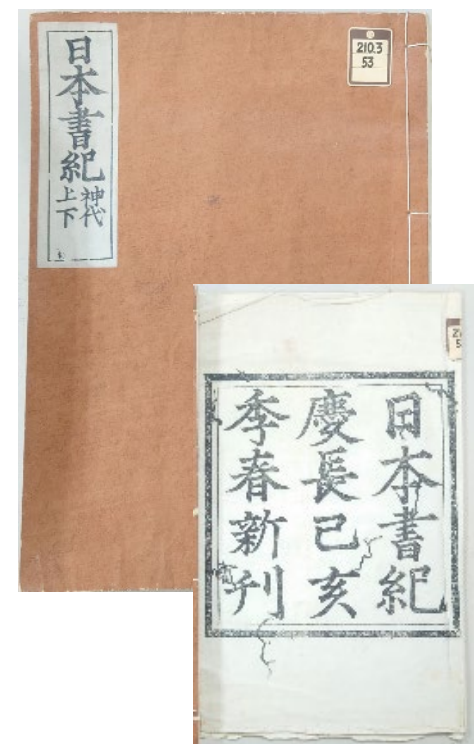 日本書紀
神代
上下
210.3
53
日本書紀
慶長己亥
季春新刊